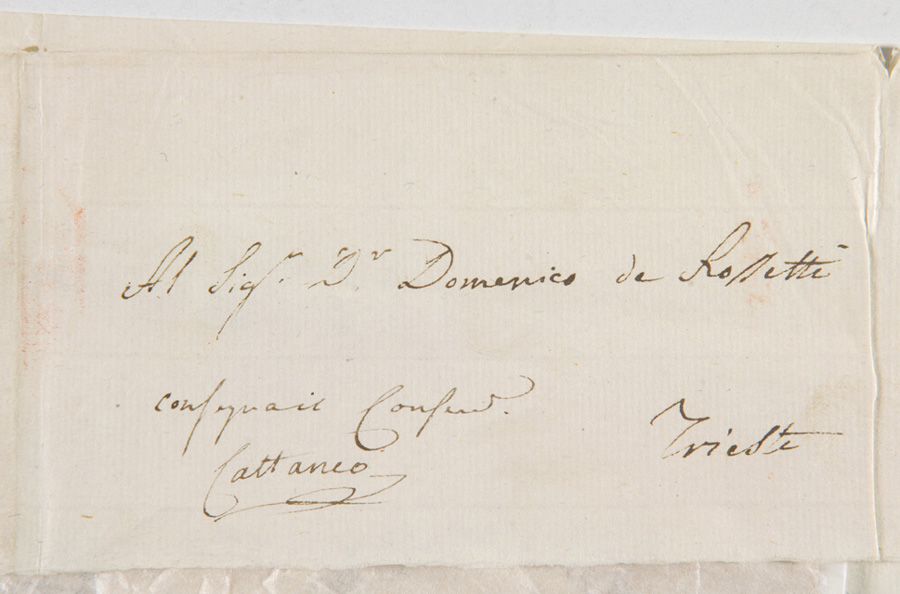 Al Sigr. Dr. Domenico de Rossetti
consegna il Conserv.
Cattaneo
Trieste